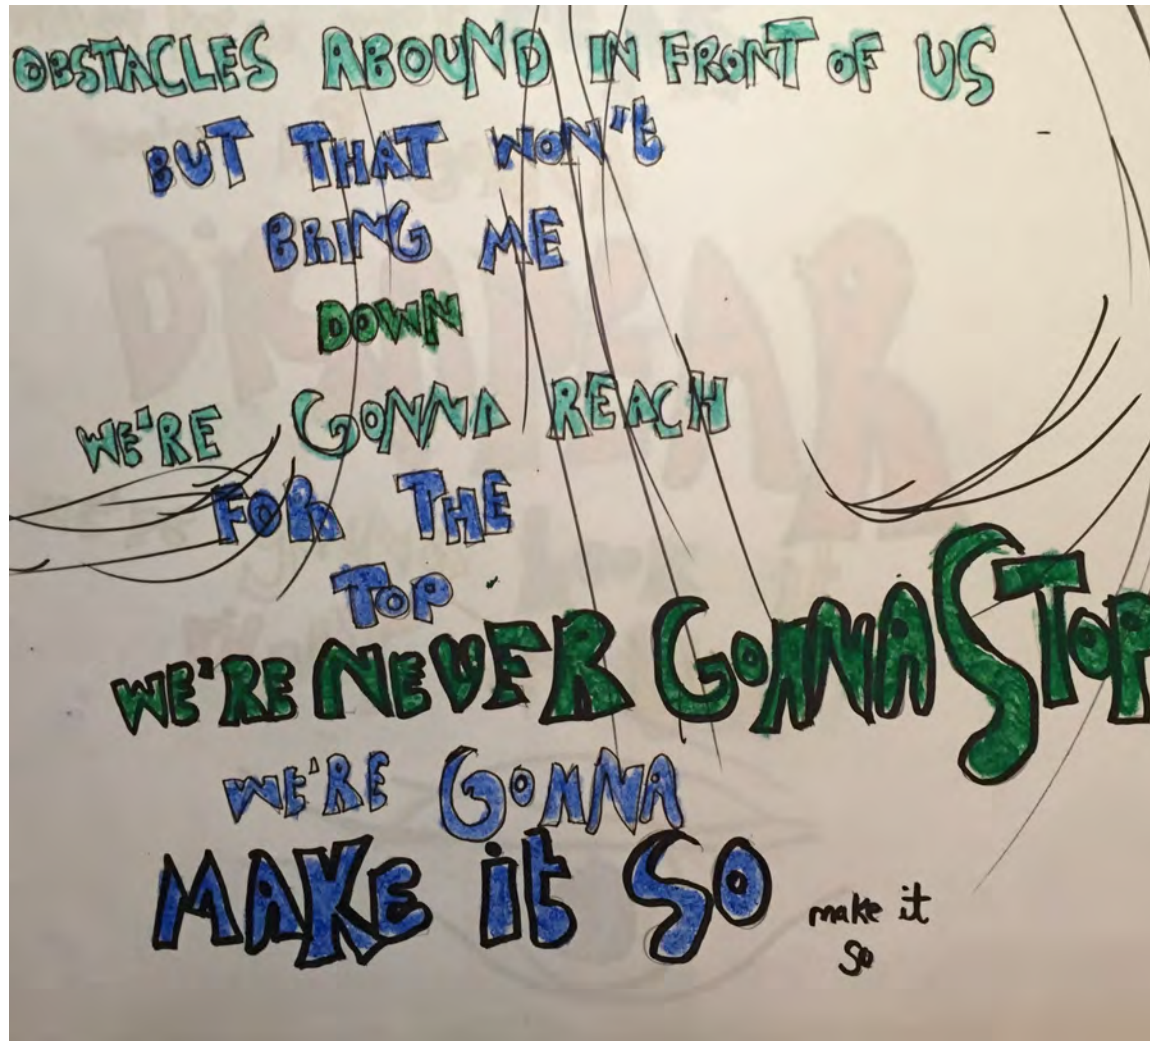 OBSTACLES ABOUND IN FRONT OF US
BUT THAT WON't
BRING ME
DOWN
WE'RE GONNA REACH
FOR THE
TOP
WE'RE NEVER GONNA STOP
WE'RE GONNA
MAKE it SO
make it
so